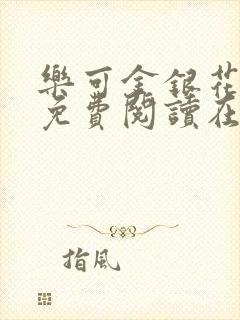 樂可金銀花
免費閱讀在
指風